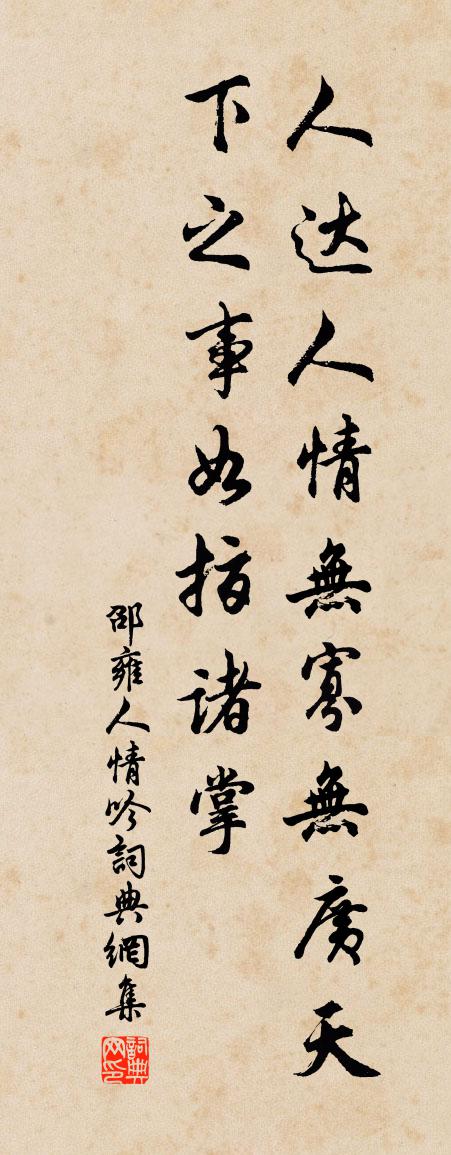 人达人情無寡無廣天
下之事如指諸掌
邵雍人情吟詞典網集
詞典网印